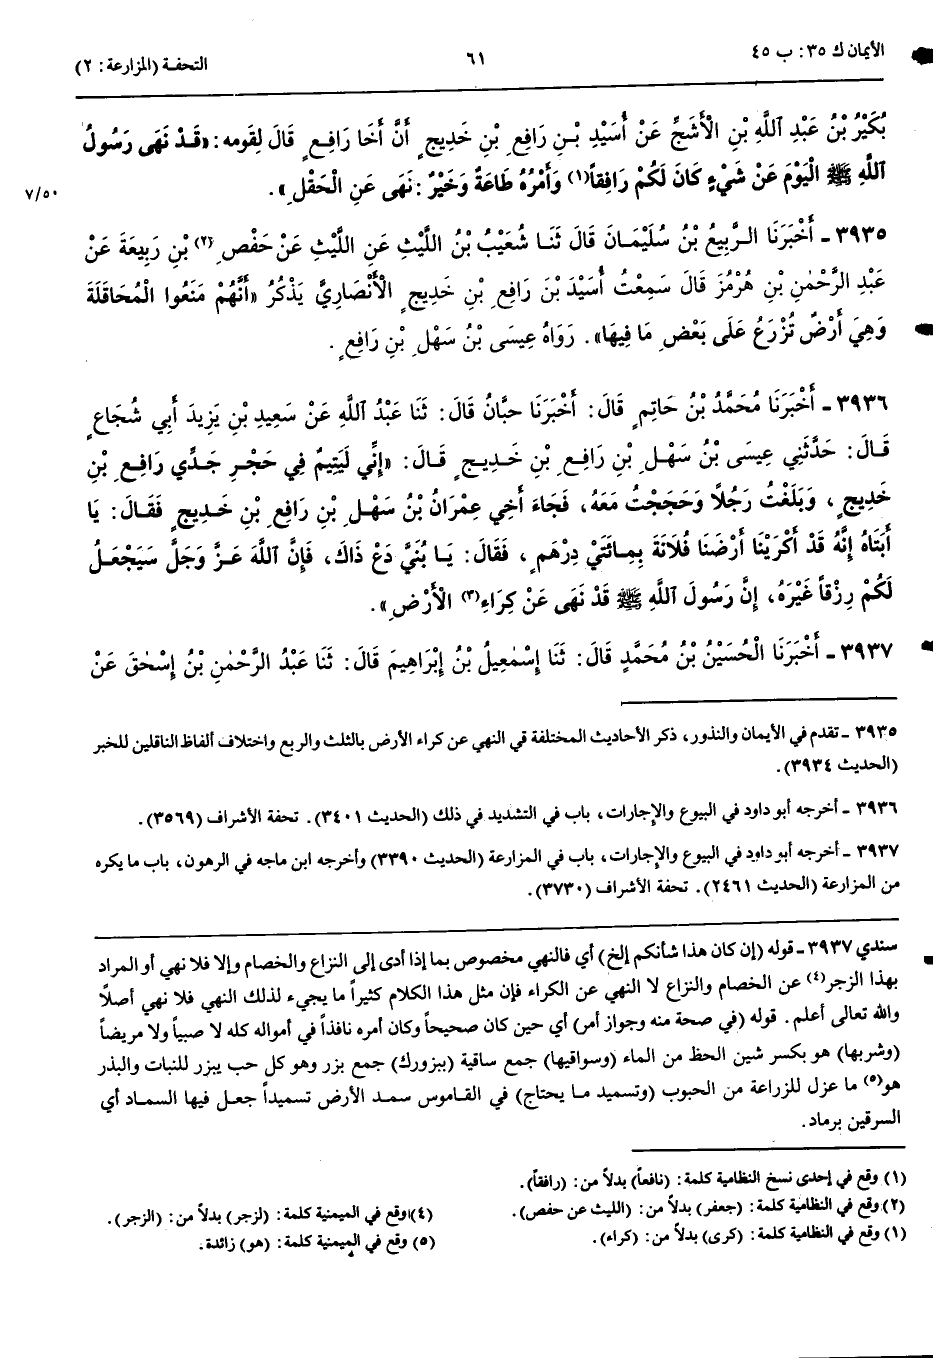 الأيمان ك ٣٥: ب ٤٥
٦١
التحفة (المزارعة: ٢)
بُكَيْرُ بْنُ عَبْدِ ٱللَّهِ بْنِ الْأَشَجِّ عَنْ أُسَيْدِ بْنِ رَافِعِ بْنِ خَدِيجٍ أَنَّ أَخَا رَافِعٍ قَالَ لِقَومِه: «قَدْ نَهَى رَسُولُ
ٱللَّهِ ﷺ الْيَوْمَ عَنْ شَيْءٍ كَانَ لَكُمْ رَافِقاً(١) وَأَمْرُهُ طَاعَةٌ وَخَيْرٌ: نَهَى عَنِ الْحَقْلِ».
٧/٥٠
٣٩٣٥ - أَخْبَرَنَا الرَّبِيعُ بْنُ سُلَيْمَانَ قَالَ ثَنَا شُعَيْبُ بْنُ اللَّيْثِ عَنِ اللَّيْثِ عَنْ حَفْصِ(٢) بْنِ رَبِيعَةَ عَنْ
عَبْدِ الرَّحْمٰنِ بْنِ هُرْمُزَ قَالَ سَمِعْتُ أُسَيْدَ بْنَ رَافِعِ بْنِ خَدِيجٍ الْأَنْصَارِيَّ يَذْكُرُ «أَنَّهُمْ مَنَعُوا الْمُحَاقَلَةَ
وَهِيَ أَرْضٌ تُزْرَعُ عَلَى بَعْضِ مَا فِيهَا». رَوَاهُ عِيسَى بْنُ سَهْلِ بْنِ رَافِعٍ.
٣٩٣٦ - أَخْبَرَنَا مُحَمَّدُ بْنُ حَاتِمٍ قَالَ: أَخْبَرَنَا حبَّانُ قَالَ: ثَنَا عَبْدُ اللَّهِ عَنْ سَعِيدِ بْنِ يَزِيدَ أَبِي شُجَاعٍ
قَالَ: حَدَّثَنِي عِيسَى بْنُ سَهْلِ بْنِ رَافِعِ بْنِ خَدِيجٍ قَالَ: «إِنِّي لَيَتِيمٌ فِي حَجْرِ جَدِّي رَافِعِ بْنِ
خَدِيجٍ، وَبَلَغْتُ رَجُلاً وَحَجَجْتُ مَعَهُ، فَجَاءَ أَخِي عِمْرَانُ بْنُ سَهْلِ بْنِ رَافِعِ بْنِ خَدِيجٍ فَقَالَ: يَا
أَبَتَاهُ إِنَّهُ قَدْ أَكْرَيْنَا أَرْضَنَا فُلَانَةَ بِمِائَتَيْ دِرْهَمٍ، فَقَالَ: يَا بُنَيَّ دَعْ ذَاكَ، فَإِنَّ اللَّهَ عَزَّ وَجَلَّ سَيَجْعَلُ
لَكُمْ رِزْقاً غَيْرَهُ، إِنَّ رَسُولَ ٱللَّهِ ﷺ قَدْ نَهَى عَنْ كِرَاءِ(٣) الْأَرْضِ».
٣٩٣٧ - أَخْبَرَنَا الْحُسَيْنُ بْنُ مُحَمَّدٍ قَالَ: ثَنَا إِسْمٰعِيلُ بْنُ إِبْرَاهِيمَ قَالَ: ثَنَا عَبْدُ الرَّحْمٰنِ بْنُ إِسْحٰقَ عَنْ
٣٩٣٥ - تقدم في الأيمان والنذور، ذكر الأحاديث المختلفة في النهي عن كراء الأرض بالثلث والربع واختلاف ألفاظ الناقلين للخبر
(الحديث ٣٩٣٤).
٣٩٣٦ - أخرجه أبو داود في البيوع والإجارات، باب في التشديد في ذلك (الحديث ٣٤٠١). تحفة الأشراف (٣٥٦٩).
٣٩٣٧ - أخرجه أبو داود في البيوع والإجارات، باب في المزارعة (الحديث ٣٣٩٠) وأخرجه ابن ماجه في الرهون، باب ما يكره
من المزارعة (الحديث ٢٤٦١). تحفة الأشراف (٣٧٣٠).
سندي ٣٩٣٧ - قوله (إن كان هذا شأنكم إلخ) أي فالنهي مخصوص بما إذا أدى إلى النزاع والخصام وإلا فلا نهي أو المراد
بهذا الزجر(٤) عن الخصام والنزاع لا النهي عن الكراء فإن مثل هذا الكلام كثيراً ما يجيء لذلك النهي فلا نهي أصلًا
والله تعالى أعلم. قوله (في صحة منه وجواز أمر) أي حين كان صحيحاً وكان أمره نافذاً في أمواله كله لا صبياً ولا مريضاً
(وشربها) هو بكسر شين الحظ من الماء (وسواقيها) جمع ساقية (ببزورك) جمع بزر وهو كل حب يبزر للنبات والبذر
هو(٥) ما عزل للزراعة من الحبوب (وتسميد ما يحتاج) في القاموس سمد الأرض تسميداً جعل فيها السماد أي
السرقين برماد.
(١) وقع في إحدى نسخ النظامية كلمة: (نافعاً) بدلاً من: (رافقاً).
(٢) وقع في النظامية كلمة: (جعفر) بدلاً من: (الليث عن حفص).
(١) وقع في النظامية كلمة: (كرى) بدلاً من: (كراء).
(٤) اوقع في الميمنية كلمة: (لزجر) بدلاً من: (الزجر).
(٥) وقع في الميمنية كلمة: (هو) زائدة.